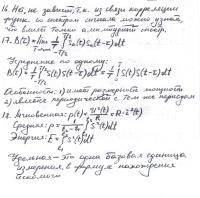 16. Нет, не зависит, т.к. из связи корреляции
функ. со спектром сигнала можно узнать,
что влияет только амплитудный спектр.
17. B(τ) = lim 1/T ∫ Sₙ(t)Sₙ(t-τ)dt
T→∞ -T/2
Усреднение по одному:
B(τ) = 1/T ∫ S(t)S(t-τ)dt = 1/T ∫ S(t)S(t-τ)dt
Особенности: 1) имеет размерность мощности
2) является периодической с тем же периодом
18. Мгновенная: p(t) = u²(t)/R = R·i²(t)
Средняя: P = ∫ S²(t)dt
Энергия: E = ∫ S²(t)dt
Удельная - это одна базовая единица
измерения в формуле нахождения
искомого